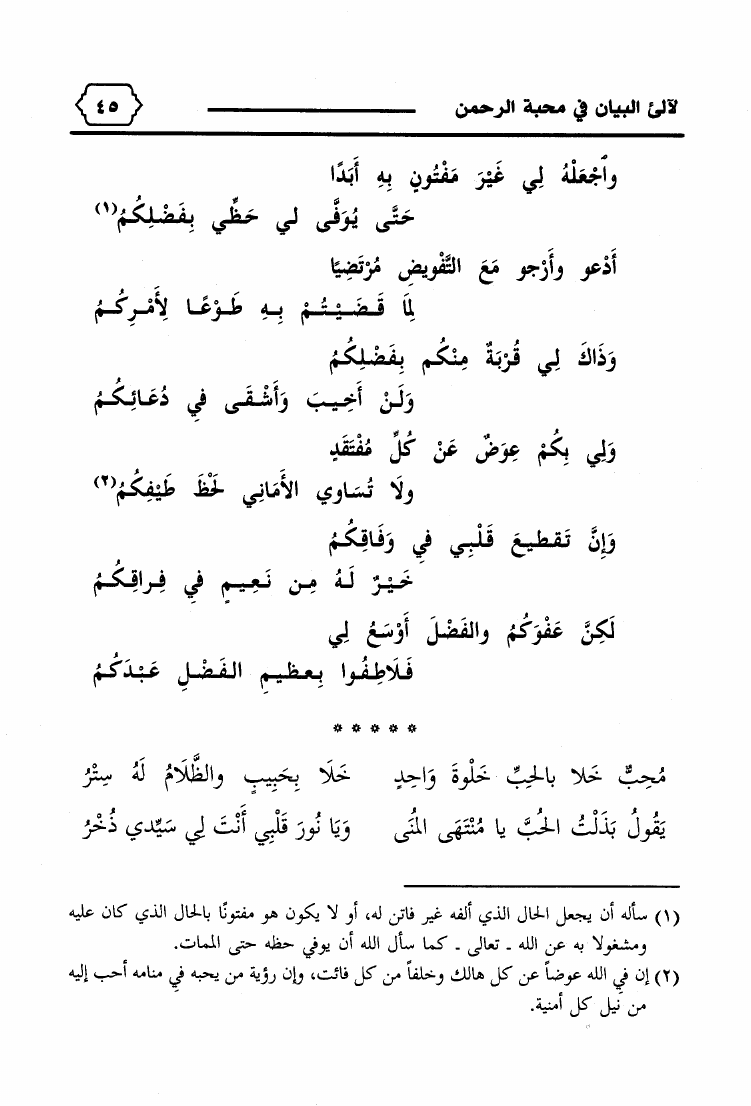 لآلئ البيان في محبة الرحمن ٤٥
وٱجْعَلْهُ لِي غَيْرَ مَفْتُونٍ بِهِ أَبَدًا
حَتَّى يُوَفَّى لي حَظِّي بِفَضْلِكُمُ(١)
أَدْعو وأَرْجو مَعَ التَّفْويضِ مُرْتَضِيًا
لِمَا قَضَيْتُمْ بِهِ طَوْعًا لِأَمْرِكُمُ
وَذَاكَ لِي قُرْبَةٌ مِنْكُم بِفَضْلِكُمُ
وَلَنْ أَخِيبَ وَأَشْقَى فِي دُعَائِكُمُ
وَلِي بِكُمْ عِوَضٌ عَنْ كُلِّ مُفْتَقَدٍ
ولَا تُسَاوي الأَمَانِي لَحْظَ طَيْفِكُمُ(٢)
وَإِنَّ تَقطيعَ قَلْبِي فِي وَفَاقِكُمُ
خَيْرٌ لَهُ مِن نَعِيمٍ فِي فِراقِكُمُ
لَكِنَّ عَفْوَكُمُ والفَضْلَ أَوْسَعُ لِي
فَلَاطِفُوا بِعظيمِ الفَضْلِ عَبْدَكُمُ
* * * * *
مُحِبٌّ خَلا بالحِبِّ خَلْوةَ وَاحِدٍ خَلَا بِحَبِيبٍ والظَّلَامُ لَهُ سِتْرُ
يَقُولُ بَذَلْتُ الحُبَّ يا مُنْتَهَى المُنَى وَيَا نُورَ قَلْبِي أَنْتَ لِي سَيِّدي ذُخْرُ
(١) سأله أن يجعل الحال الذي ألفه غير فاتن له، أو لا يكون هو مفتونًا بالحال الذي كان عليه
ومشغولا به عن الله - تعالى - كما سأل الله أن يوفي حظه حتى الممات.
(٢) إن في الله عوضاً عن كل هالك وخلفاً من كل فائت، وإن رؤية من يحبه في منامه أحب إليه
من نيل كل أمنية.